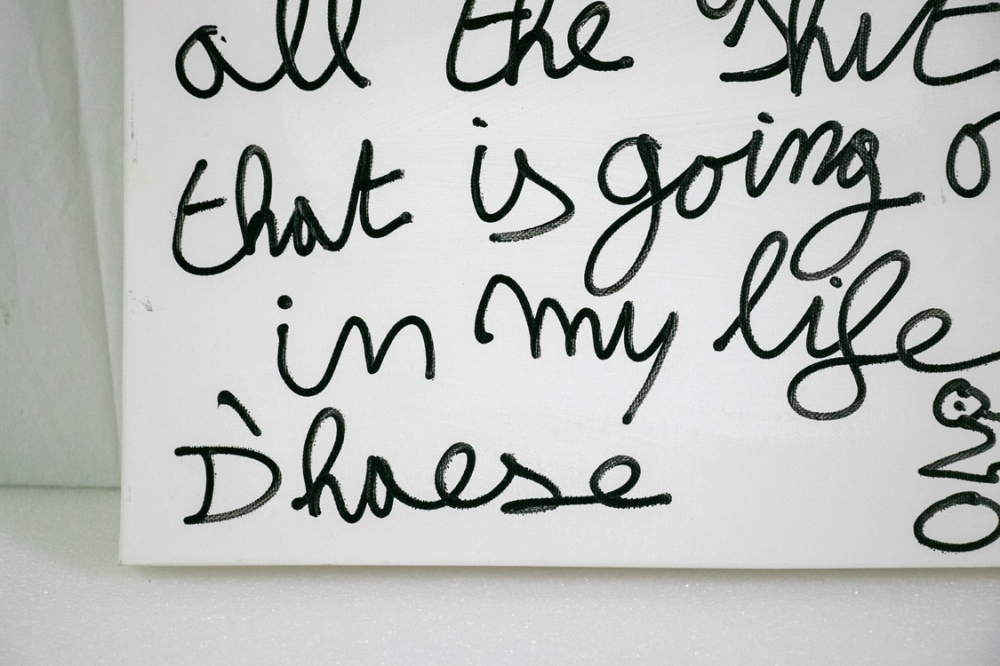 all the shit
that is going o
in my life
D'haese